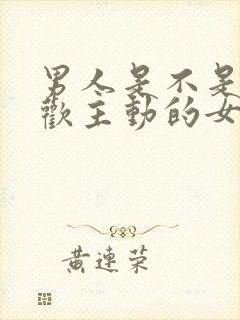 男人是不是
歡主動的女
黃連荣